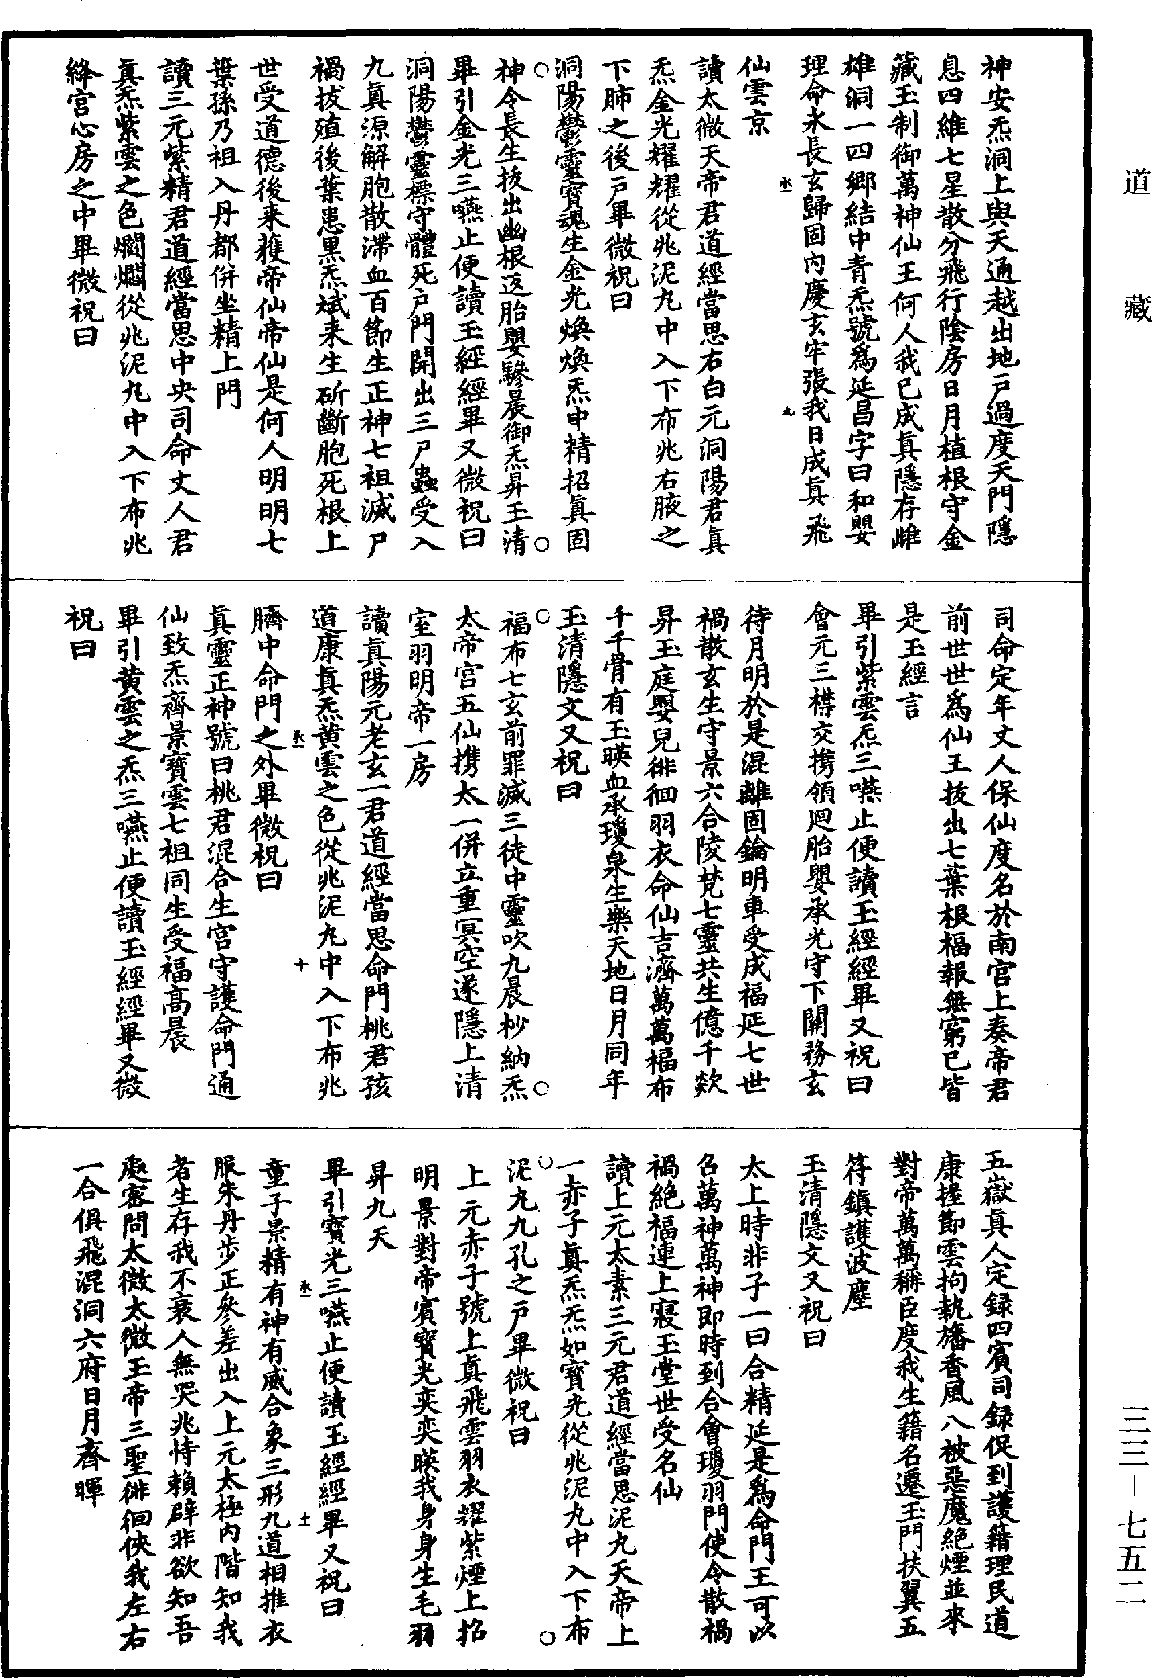 神安炁洞上與天通越出地戶過度天門隱
息四維七星散分飛行陰房日月植根守金
藏玉制御萬神仙王何人我已成真隱存雌
雄洞一四鄉結中青炁號爲延昌字曰和嬰
理命永長玄歸固內慶玄牢張我日成真飛
仙雲京
讀太微天帝君道經當思右白元洞陽君真
炁金光耀耀從兆泥丸中入下布兆右腋之
下肺之後戶畢微祝曰
洞陽鬱靈寶魂生金光煥煥炁中精招真固
神令長生拔出幽根返胎嬰驂晨御炁昇玉清
畢引金光三嚥止便讀玉經經畢又微祝曰
洞陽鬱靈標守體死戶門開出三尸蟲受入
九真源解胞散滯血百節生正神七祖滅尸
禍拔殖後葉患黑炁斌来生斫斷胞死根上
世受道德後来獲帝仙帝仙是何人明明七
葉孫乃祖入丹都併坐精上門
讀三元紫精君道經當思中央司命丈人君
真炁紫雲之色燜燜從兆泥丸中入下布兆
絳宮心房之中畢微祝曰
司命定年丈人保仙度名於南宮上奏帝君
前世世爲仙王拔出七葉根福報無窮已皆
是玉經言
畢引紫雲炁三嚥止便讀玉經經畢又祝曰
會元三襟交携領迴胎嬰承光守下關務玄
待月明於是混離固鑰明車受成福延七世
禍散玄生守景六合陵梵七靈共生億千歘
昇玉庭嬰兒徘徊羽衣命仙吉濟萬萬福布
千千骨有玉暎血承瓊泉生樂天地日月同年
玉清隱文又祝曰
福布七玄前罪滅三徒中靈吹九晨杪納炁
太帝宮五仙携太一併立重冥空遂隱上清
室羽明帝一房
讀真陽元老玄一君道經當思命門桃君孩
道康真炁黄雲之色從兆泥丸中入下布兆
臍中命門之外畢微祝曰
真靈正神號曰桃君混合生宮守護命門通
仙致炁齊景寶雲七祖同生受福高晨
畢引黄雲之炁三嚥止便讀玉經經畢又微
祝曰
五嶽真人定録四賓司録促到護籍理民道
康握節雲拘執旛香風八被惡魔絕煙並來
對帝萬萬稱臣度我生籍名遷玉門扶翼五
符鎮護波塵
玉清隱文又祝曰
太上時非子一曰合精延是爲命門王可以
召萬神萬神即時到合會瓊羽門使令散禍
禍絕福連上寢玉堂世受名仙
讀上元太素三元君道經當思泥丸天帝上
一赤子真炁炁如寶光從兆泥丸中入下布
泥丸九孔之戶畢微祝曰
上元赤子號上真飛雲羽衣耀紫煙上招
明景對帝賓寶光奕奕暎我身身生毛羽
昇九天
畢引寶光三嚥止便讀玉經經畢又祝曰
童子景精有神有威合象三形九道相推衣
服朱丹步正參差出入上元太極內階知我
者生存我不衰人無哭兆恃賴辟非欲知吾
處密問太微太微王帝三聖徘徊俠我左右
一合俱飛混洞六府日月齊暉
道藏
三三—七五二